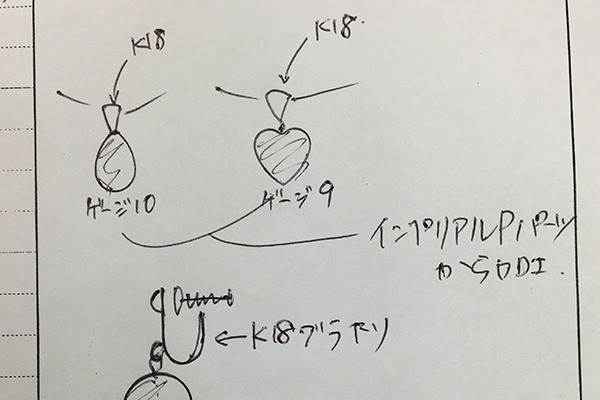 K18
K18.
ゲージ10
ゲージ9
インペリアルPパーツ
から加工.
←K18ブラ